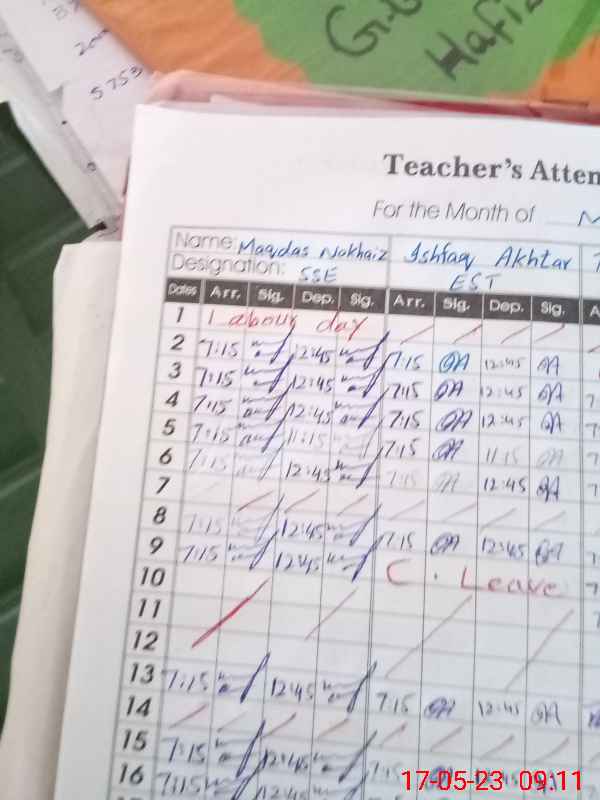 200
5753
G.G
Hafi
Teacher's Atten
For the Month of M
Name: Maqdas Nakhaiz Ishfaq Akhtar
Designation: SSE EST
Dates Arr. Sig. Dep. Sig. Arr. Sig. Dep. Sig. A
1 Labour day
2 7:15 12:45 7:15 12:45
3 7:15 12:45 7:15 12:45
4 7:15 12:45 7:15 12:45
5 7:15 11:15 7:15 11:15
6 7:15 12:45 7:15 12:45
7
8 7:15 12:45 7:15 12:45
9 7:15 12:45 C. Leave
10
11
12
13 7:15 12:45 7:15 12:45
14
15 7:15 12:45 7:15
16 7:15 12:45
17-05-23 09:11